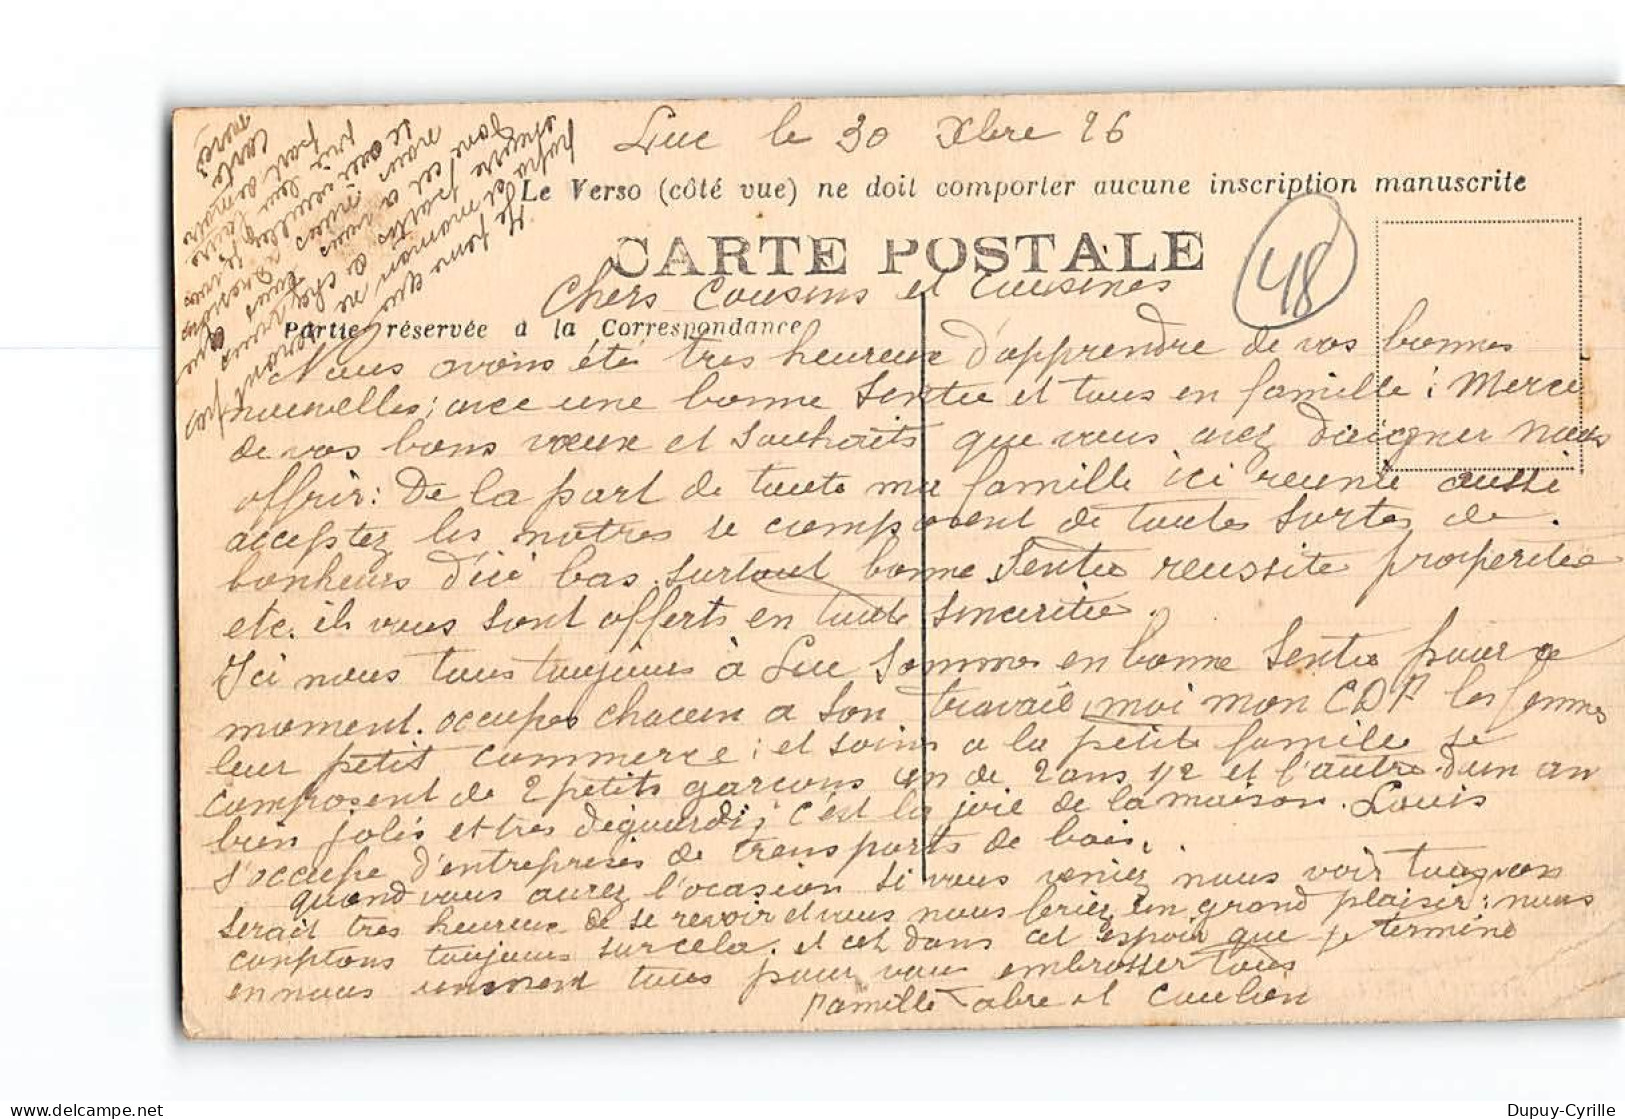 Luc le 30 Xbre 26
Le Verso (côté vue) ne doit comporter aucune inscription manuscrite
CARTE POSTALE
48
Chers Cousins et Cousines
Partie réservée à la Correspondance
Nous avons été tres heureux d'apprendre de vos bonnes
nouvelles; avec une bonne Sentee et tous en famille; Merci
de vos bons vœux et Souhaits que vous avez daigner nous
offrir: De la part de toute ma famille ici reunie aussi
acceptez les notres se composent de toutes Sortes de
bonheurs d'ici bas surtout bonne Sentee reussite prosperitee
etc. ils vous sont offerts en toute Sinceritee.
Ici nous tous toujours à Luc Sommes en bonne Sentee pour ce
moment. occupes chacun a Son travail, moi mon CDF les femmes
leur petit commerce; et soins a la petite famille se
composent de 2 petits garcons un de 2 ans 1/2 et l'autre d'un an
bien jolis et tres degourdis; c'est la joie de la maison. Louis
s'occupe d'entreprises de transports de bois.
quand vous aurez l'ocasion si vous veniez nous voir tous on
serait tres heureux de se revoir et vous nous feriez un grand plaisir; nous
comptons toujours sur cela. et cet dans cet espoir que je termine
en nous unissent tous pour vous embrasser tous
Famille Fabre et
Dupuy-Cyrille